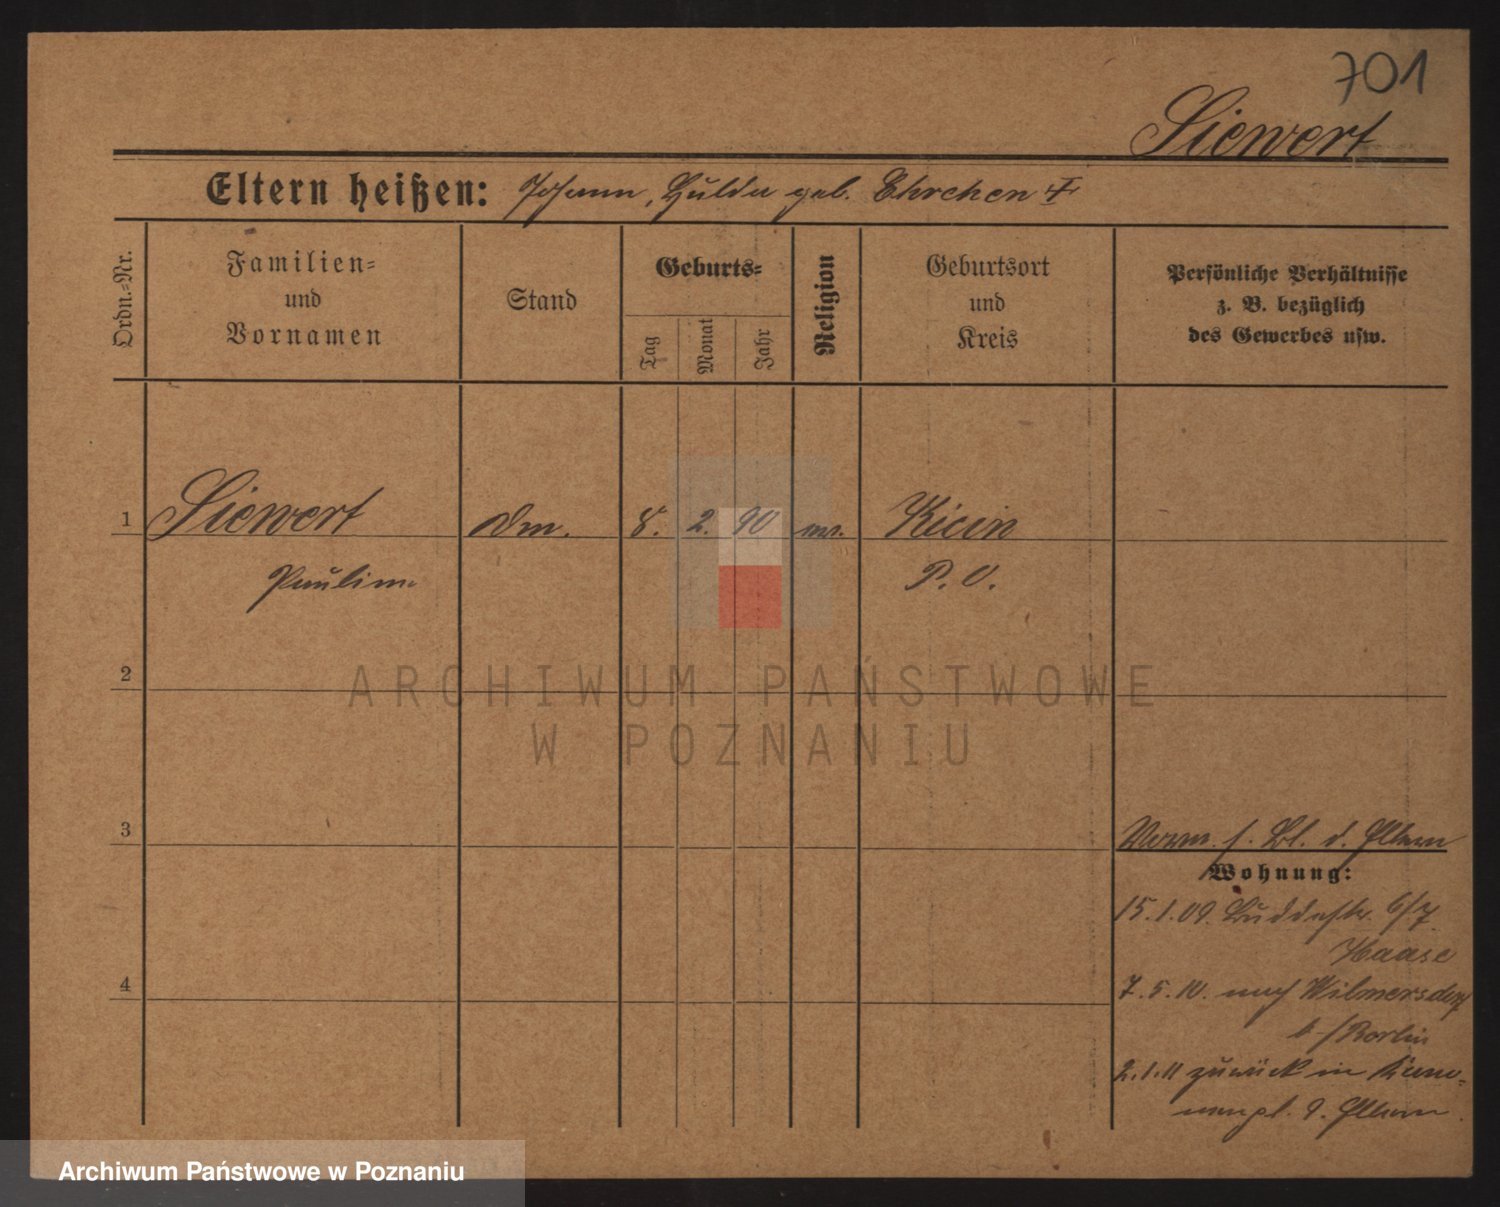 701
Siewert
Eltern heißen: Johann, Hulda geb. Ehrchen
Ordn.-Nr.
Familien-
und
Vornamen
Stand
Geburts-
Tag
Monat
Jahr
Religion
Geburtsort
und
Kreis
Persönliche Verhältnisse
z. B. bezüglich
des Gewerbes usw.
1 Siewert 8. 2. 90 Kicin
Pauline P. O.
ARCHIWUM PAŃSTWOWE
W POZNANIU
2
3
Verm. s. Bl. d. Eltern
Wohnung:
15.1.09. Buddestr. 6/7.
Haase
4
7.5.10. nach Wilmersdorf
b/Berlin
2.1.11 zurück in
d. Eltern.
Archiwum Państwowe w Poznaniu